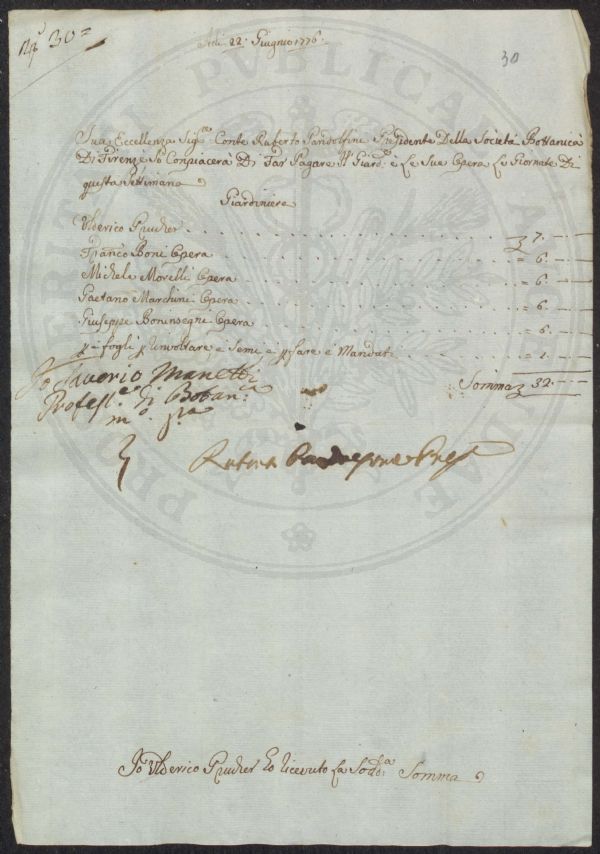 N° 30=
Adi 22. Giugno 1776.
30
Sua Eccellenza Sig.re Conte Ruberto Pandolfine Presidente Della Società Bottanica
Di Firenze Si Conpiacera Di Far Pagare Il Giard.e e Le Sue Opera Le Giornate Di
questa Settimana
Giardiniere
Ulderico Prucher 7.—
Franco Boni Opera = 6.—
Michele Morelli Opera = 6.—
Gaetano Marchini Opera = 6.—
Giuseppe Boninsegni Opera = 6.—
p = fogli p Involtare e Semi e p fare e Mandati = 1.—
Somma 32.—
Io Saverio Manetti
Profess.e di Botan.ca
m.o p.a
Ruberto Pandolfine Pres
Io Ulderico Prucher Ho Ricevuto La Sod.a Somma
PRO VERITATI PVBLICAE